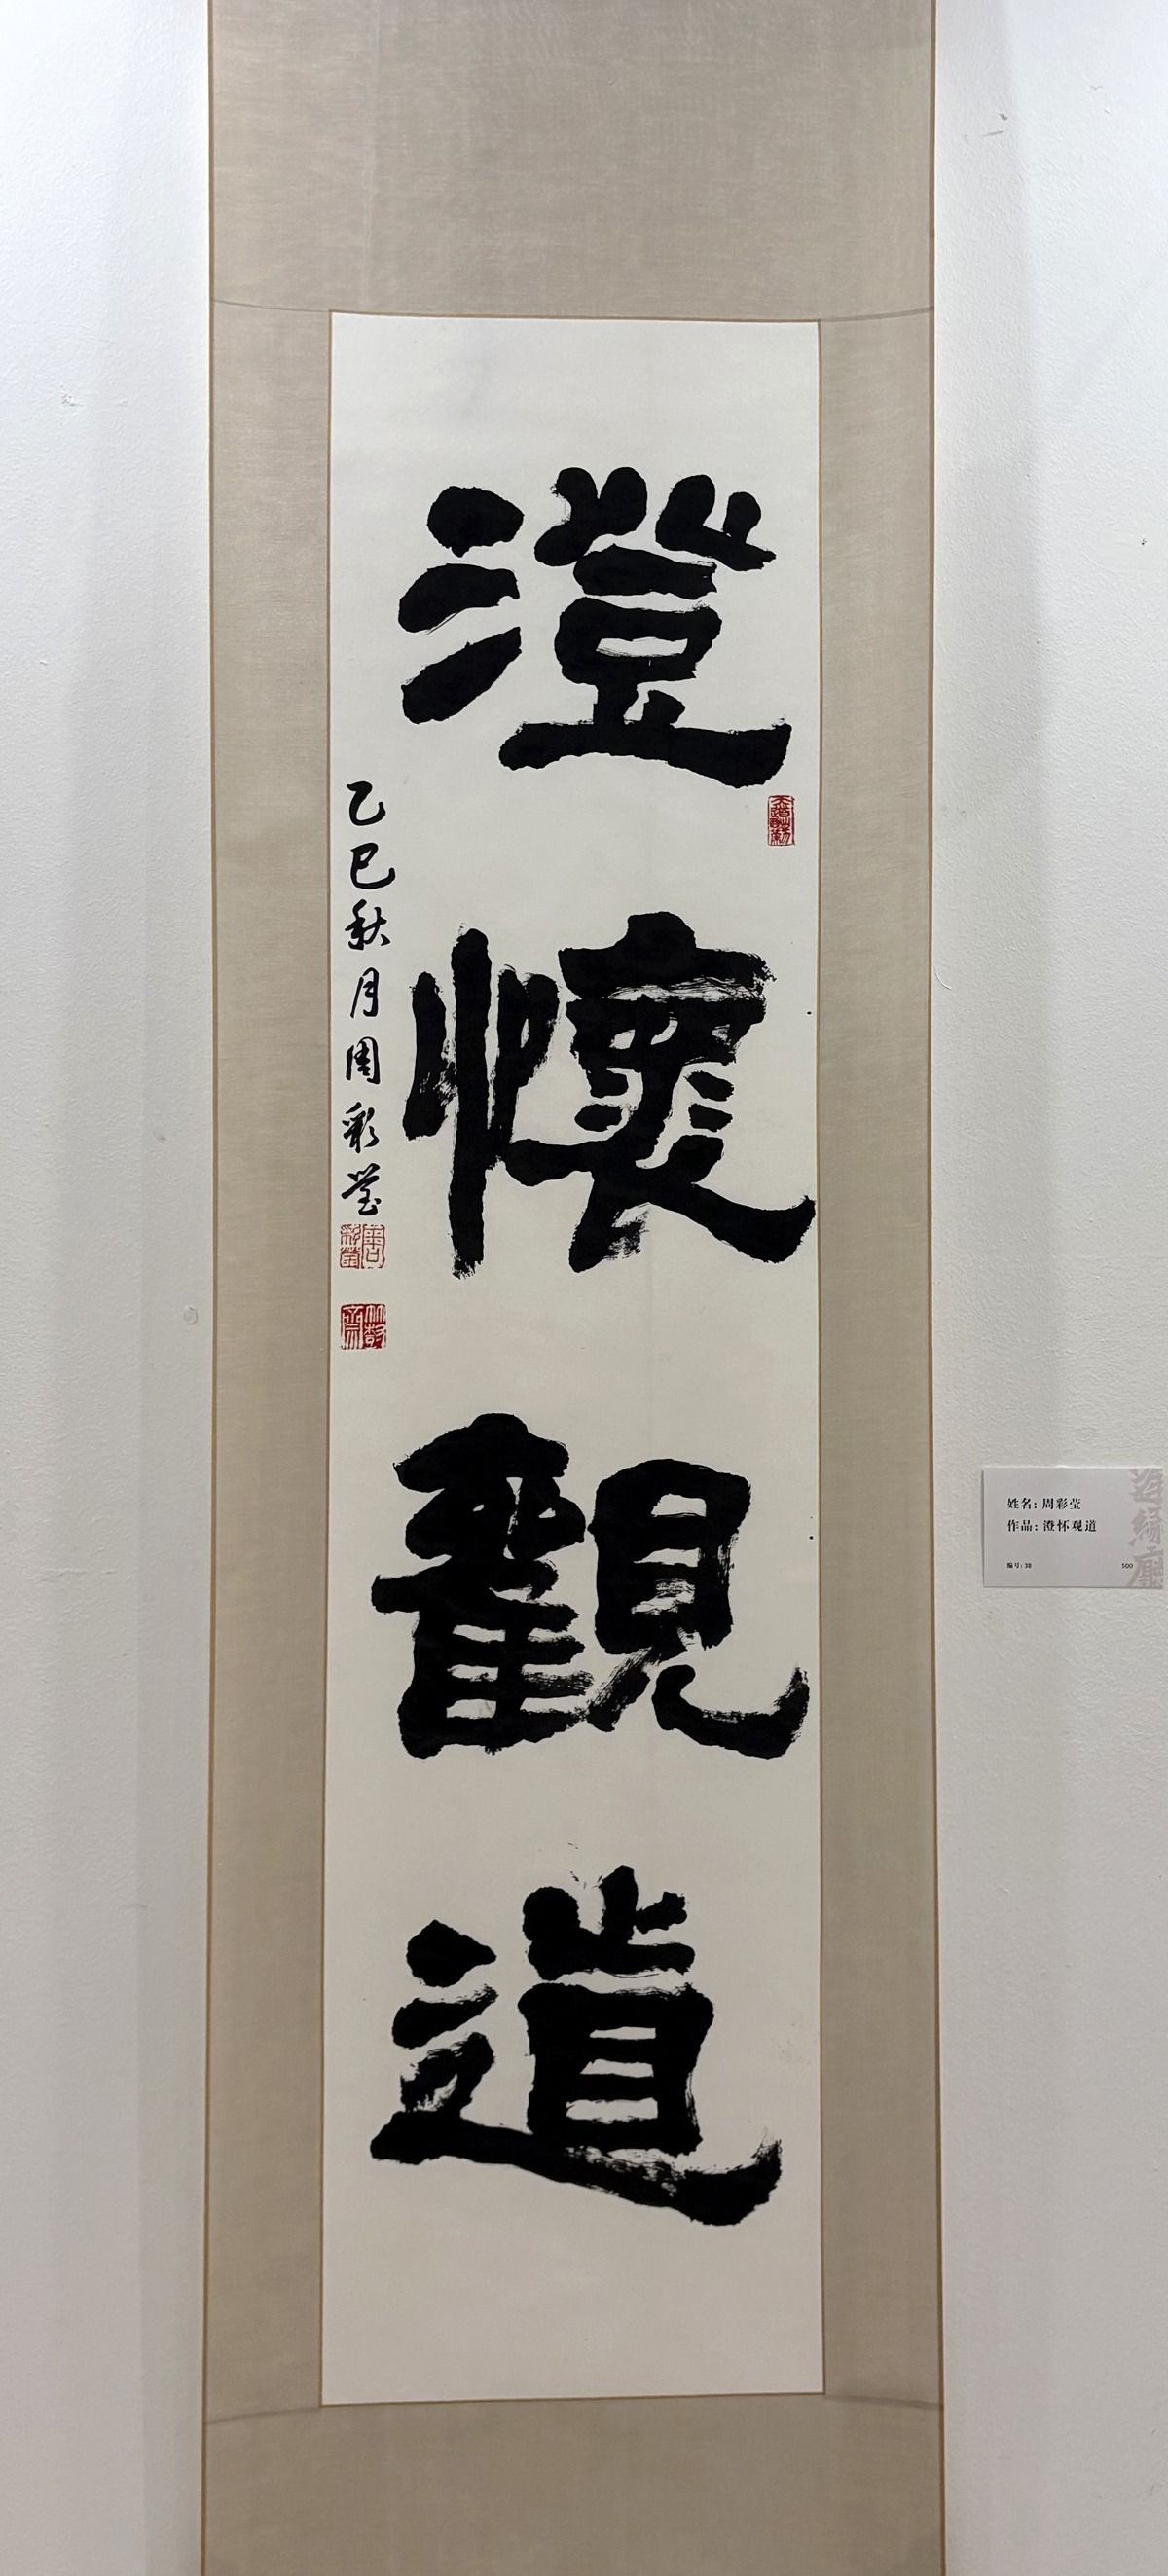 澄懷觀道
乙巳秋月周彩瑩
周彩瑩
姓名: 周彩莹
作品: 澄怀观道
编号: 38
500